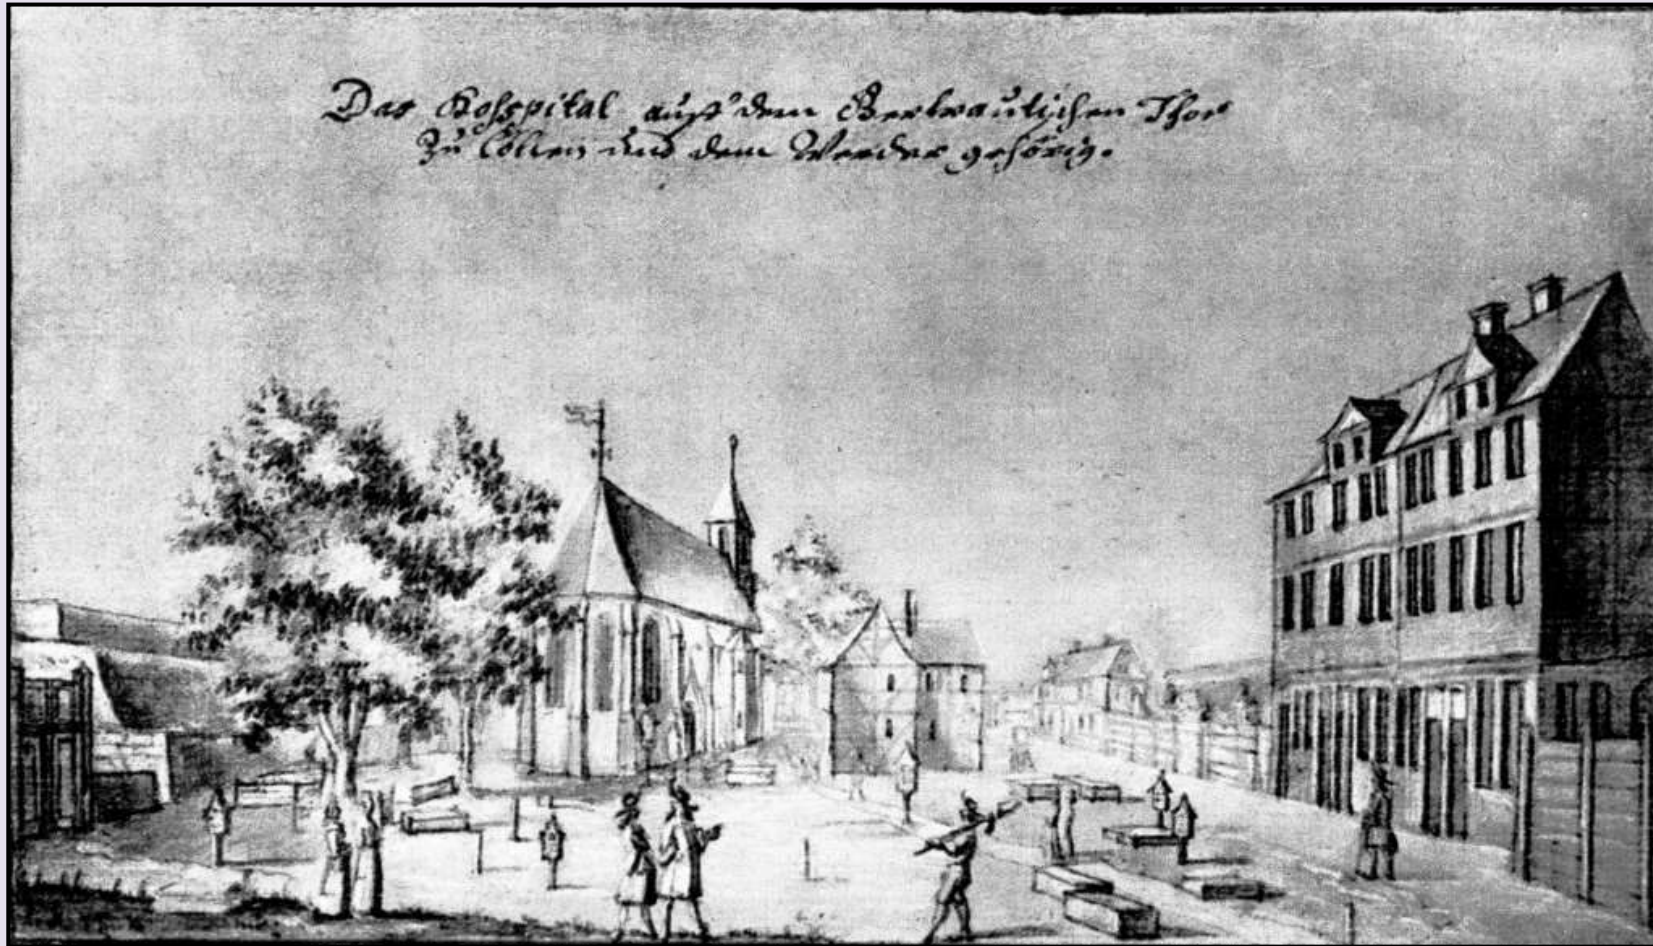 Das Hosspital auss dem Gertrautischen Thor
Zu Cöllen und dem Werder gehörig.